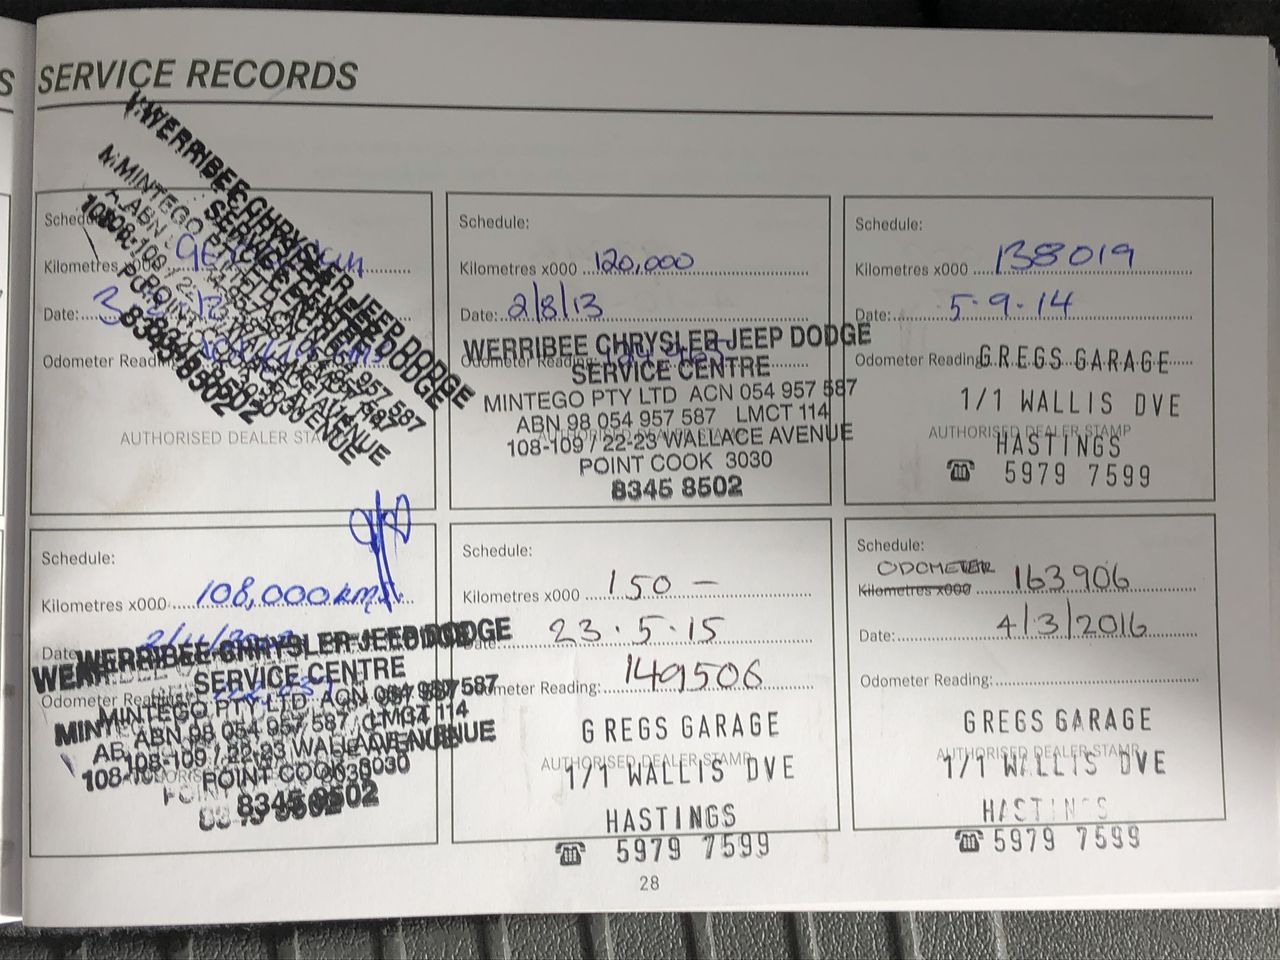 SERVICE RECORDS
Kilometres x000
Date:
Odometer Reading
WERRIBEE CHRYSLER JEEP DODGE
SERVICE CENTRE
POINT COOK
8345 8502
AUTHORISED DEALER
Schedule:
Kilometres x000 120,000
Date: 2/8/13
Odometer Reading:
WERRIBEE CHRYSLER JEEP DODGE
SERVICE CENTRE
MINTEGO PTY LTD ACN 054 957 587
ABN 98 054 957 587 LMCT 114
108-109 / 22-23 WALLACE AVENUE
POINT COOK 3030
8345 8502
Schedule:
Kilometres x000 138019
Date: 5.9.14
Odometer Reading
GREGS GARAGE
1/1 WALLIS DVE
AUTHORISED DEALER STAMP
HASTINGS
☎ 5979 7599
Schedule:
Kilometres x000 108,000 kms
Date
WERRIBEE CHRYSLER JEEP DODGE
SERVICE CENTRE
Odometer Reading:
MINTEGO PTY LTD ACN 054 957 587
ABN 98 054 957 587 LMCT 114
108-109 / 22-23 WALLACE AVENUE
POINT COOK 3030
8345 8502
Schedule:
Kilometres x000 150 –
Date: 23.5.15
Odometer Reading: 149506
GREGS GARAGE
AUTHORISED DEALER STAMP
1/1 WALLIS DVE
HASTINGS
☎ 5979 7599
Schedule:
ODOMETER
Kilometres x000 163906
Date: 4/3/2016
Odometer Reading:
GREGS GARAGE
AUTHORISED DEALER STAMP
1/1 WALLIS DVE
HASTINGS
☎ 5979 7599
28